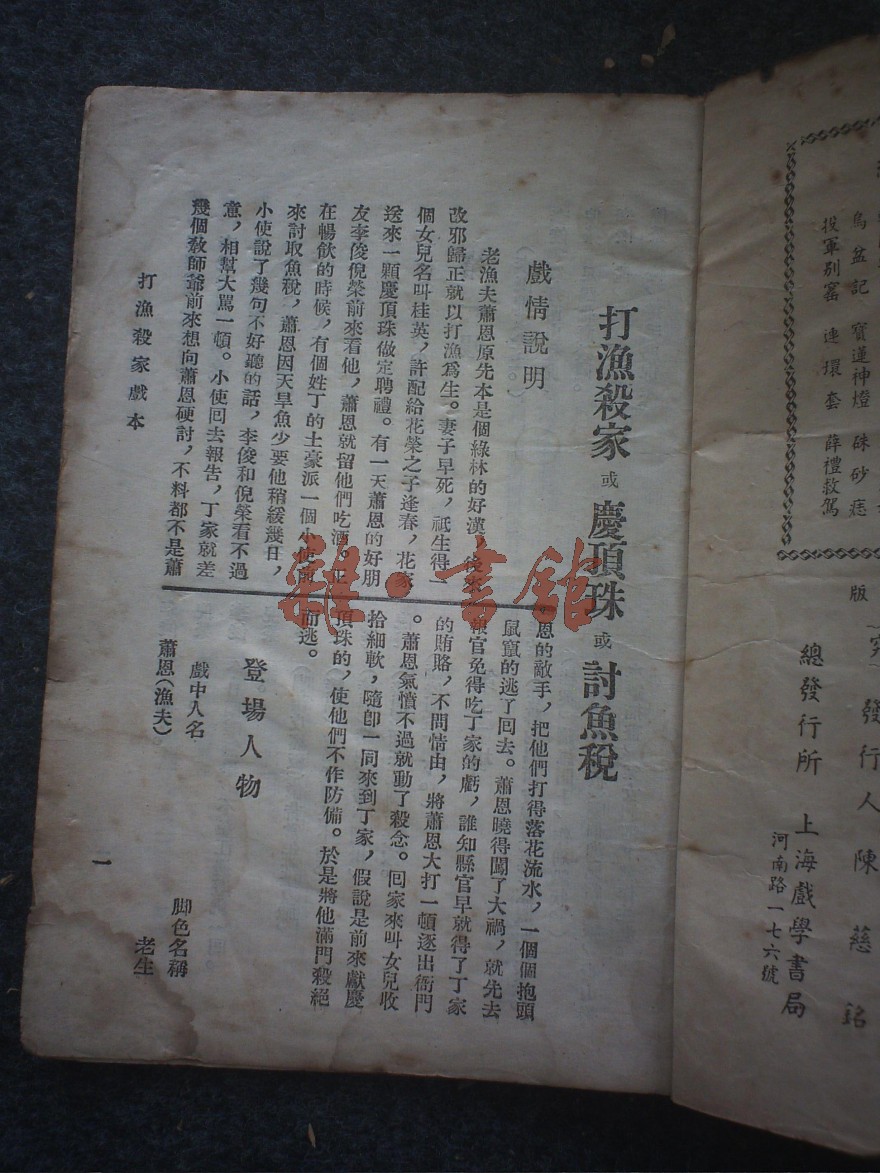 打漁殺家 或 慶頂珠 或 討魚稅
戲情說明
老漁夫蕭恩原先本是個綠林的好漢，後來
改邪歸正就以打漁爲生。妻子早死，祇生得一
個女兒名叫桂英，許配給花榮之子逢春，花家
送來一顆慶頂珠做定聘禮。有一天蕭恩的好朋
友李俊倪榮前來看他，蕭恩就留他們吃酒。正
在暢飲的時候，有個姓丁的土豪派一個小使前
來討取魚稅，蕭恩因天旱魚少要他稍緩幾日，
小使說了幾句不好聽的話，李俊和倪榮看不過
意，相幫大罵一頓。小使回去報告，丁家就差
幾個教師爺前來想向蕭恩硬討，不料都不是蕭
恩的敵手，把他們打得落花流水，一個個抱頭
鼠竄的逃了回去。蕭恩曉得闖了大禍，就先去
報官免得吃丁家的虧，誰知縣官早就得了丁家
的賄賂，不問情由，將蕭恩大打一頓逐出衙門
。蕭恩氣憤不過就動了殺念。回家來叫女兒收
拾細軟，隨卽一同來到丁家，假說是前來獻慶
頂珠的，使他們不作防備。於是將他滿門殺絕
而逃。
登場人物
戲中人名
脚色名稱
蕭恩（漁夫）
老生
打漁殺家戲本
一
烏盆記 寶蓮神燈 硃砂痣
投軍別窰 連環套 薛禮救駕
版
發行人 陳慈銘
總發行所 上海戲學書局
河南路一七六號
雜·書館